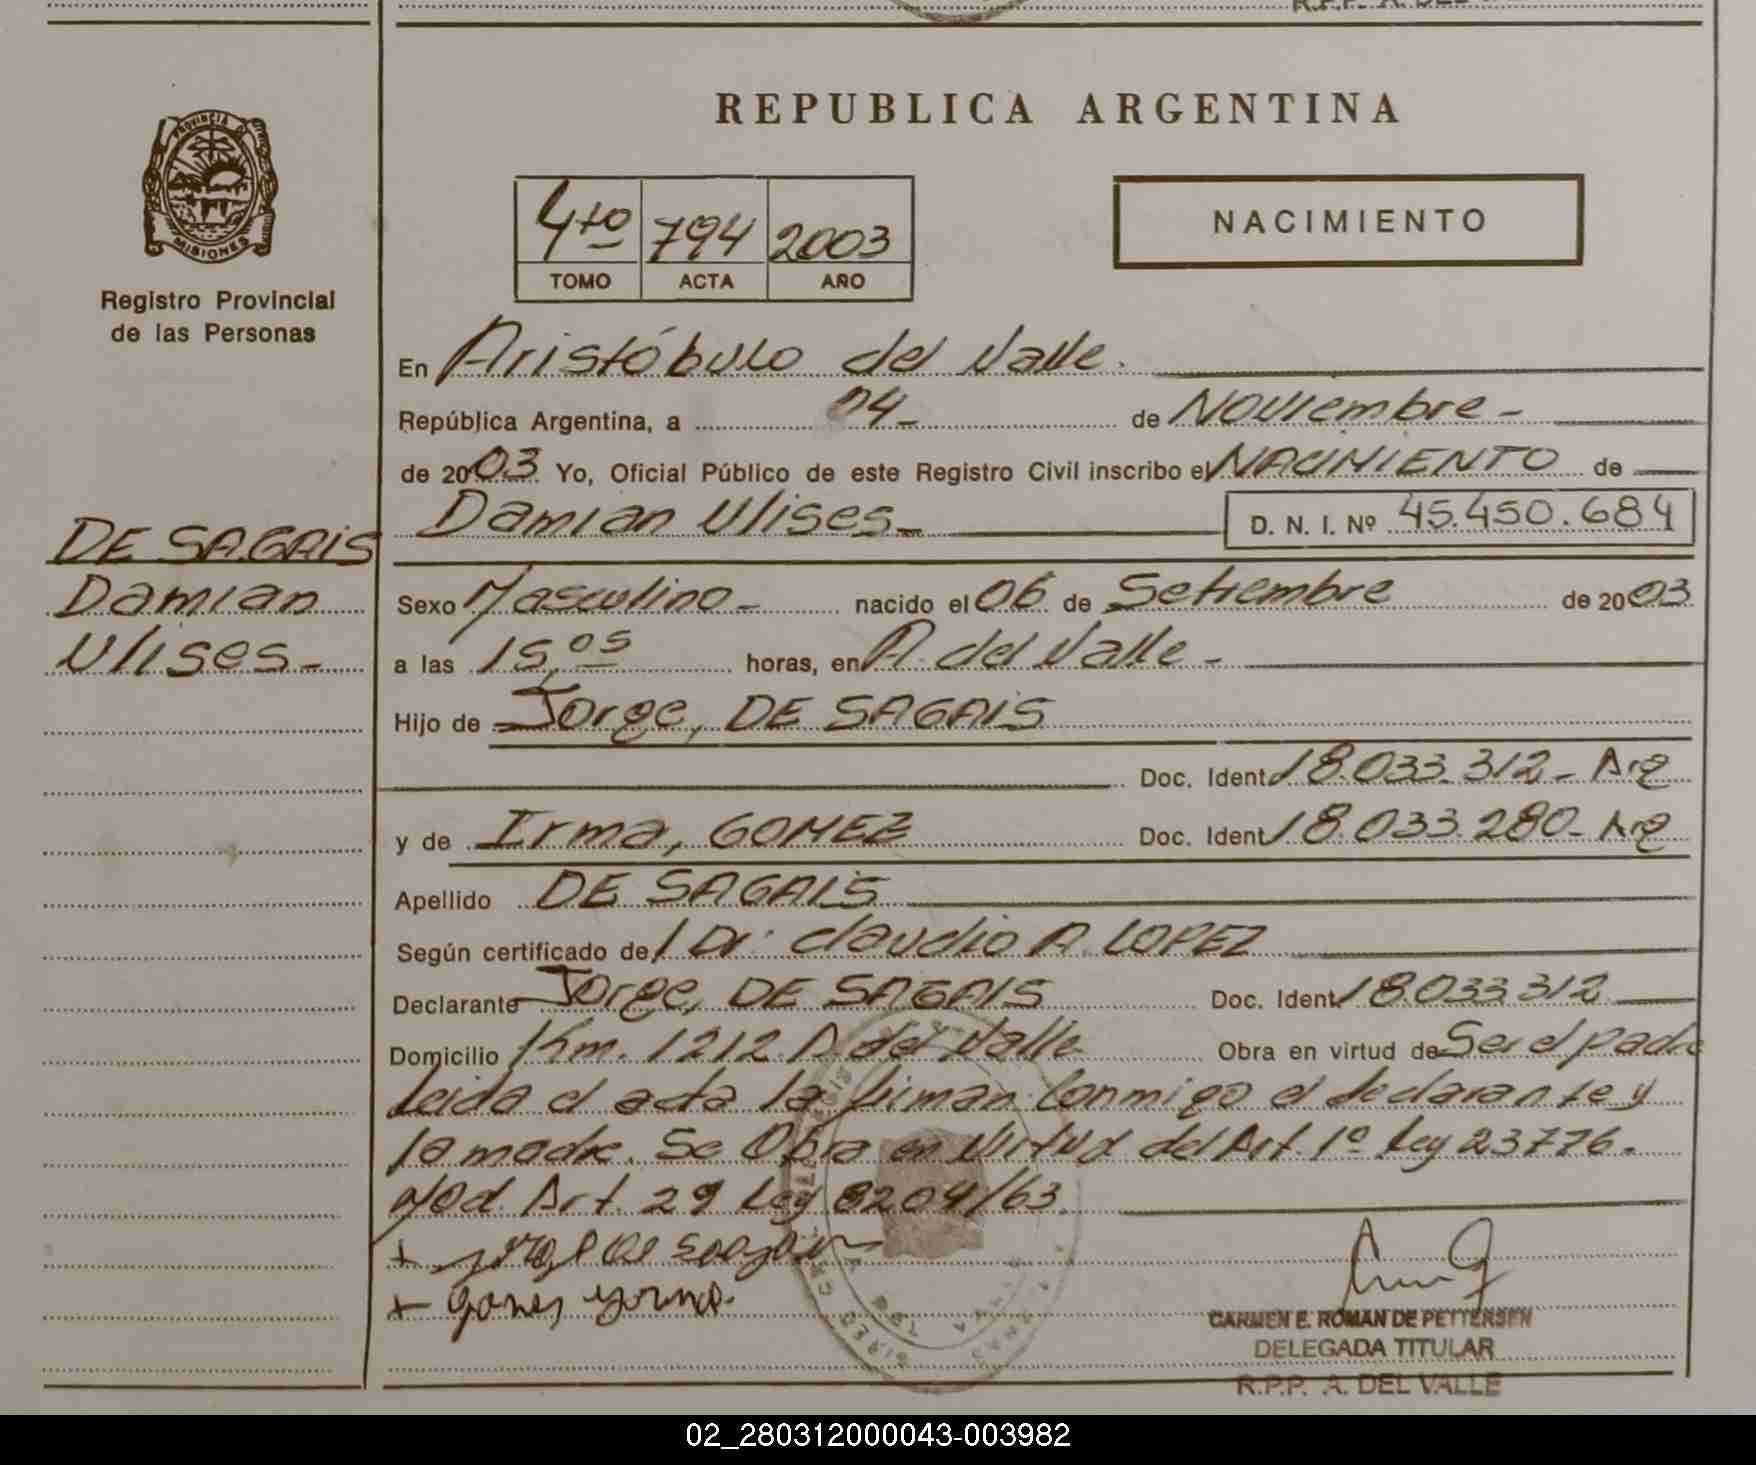 REPUBLICA ARGENTINA
PROVINCIA D
MISIONES
Registro Provincial
de las Personas
4to 794 2003
TOMO ACTA AÑO
NACIMIENTO
En Aristóbulo del Valle.
República Argentina, a 04 - de Noviembre -
de 2003 Yo, Oficial Público de este Registro Civil inscribo el NACIMIENTO de
Damian Ulises - D. N. I. Nº 45.450.684
DE SAGAIS
Damian
Ulises -
Sexo Masculino - nacido el 06 de Setiembre de 2003
a las 15,05 horas, en A. del Valle -
Hijo de Jorge, DE SAGAIS
Doc. Ident. 18.033.312 - Arg
y de Irma, GOMEZ Doc. Ident. 18.033.280 - Arg
Apellido DE SAGAIS
Según certificado del Dr. Claudio A. LOPEZ
Declarante Jorge, DE SAGAIS Doc. Ident. 18.033.312
Domicilio Km. 1212 A. del Valle Obra en virtud de Ser el padre
Leida el acta la firman conmigo el declarante y
la madre. Se Obra en virtud del Art. 1º Ley 23776.
Mod. Art. 29 Ley 8204/63.
+ gomez yrma.
CARMEN E. ROMAN DE PETTERSEN
DELEGADA TITULAR
R.P.P. A. DEL VALLE
02_280312000043-003982